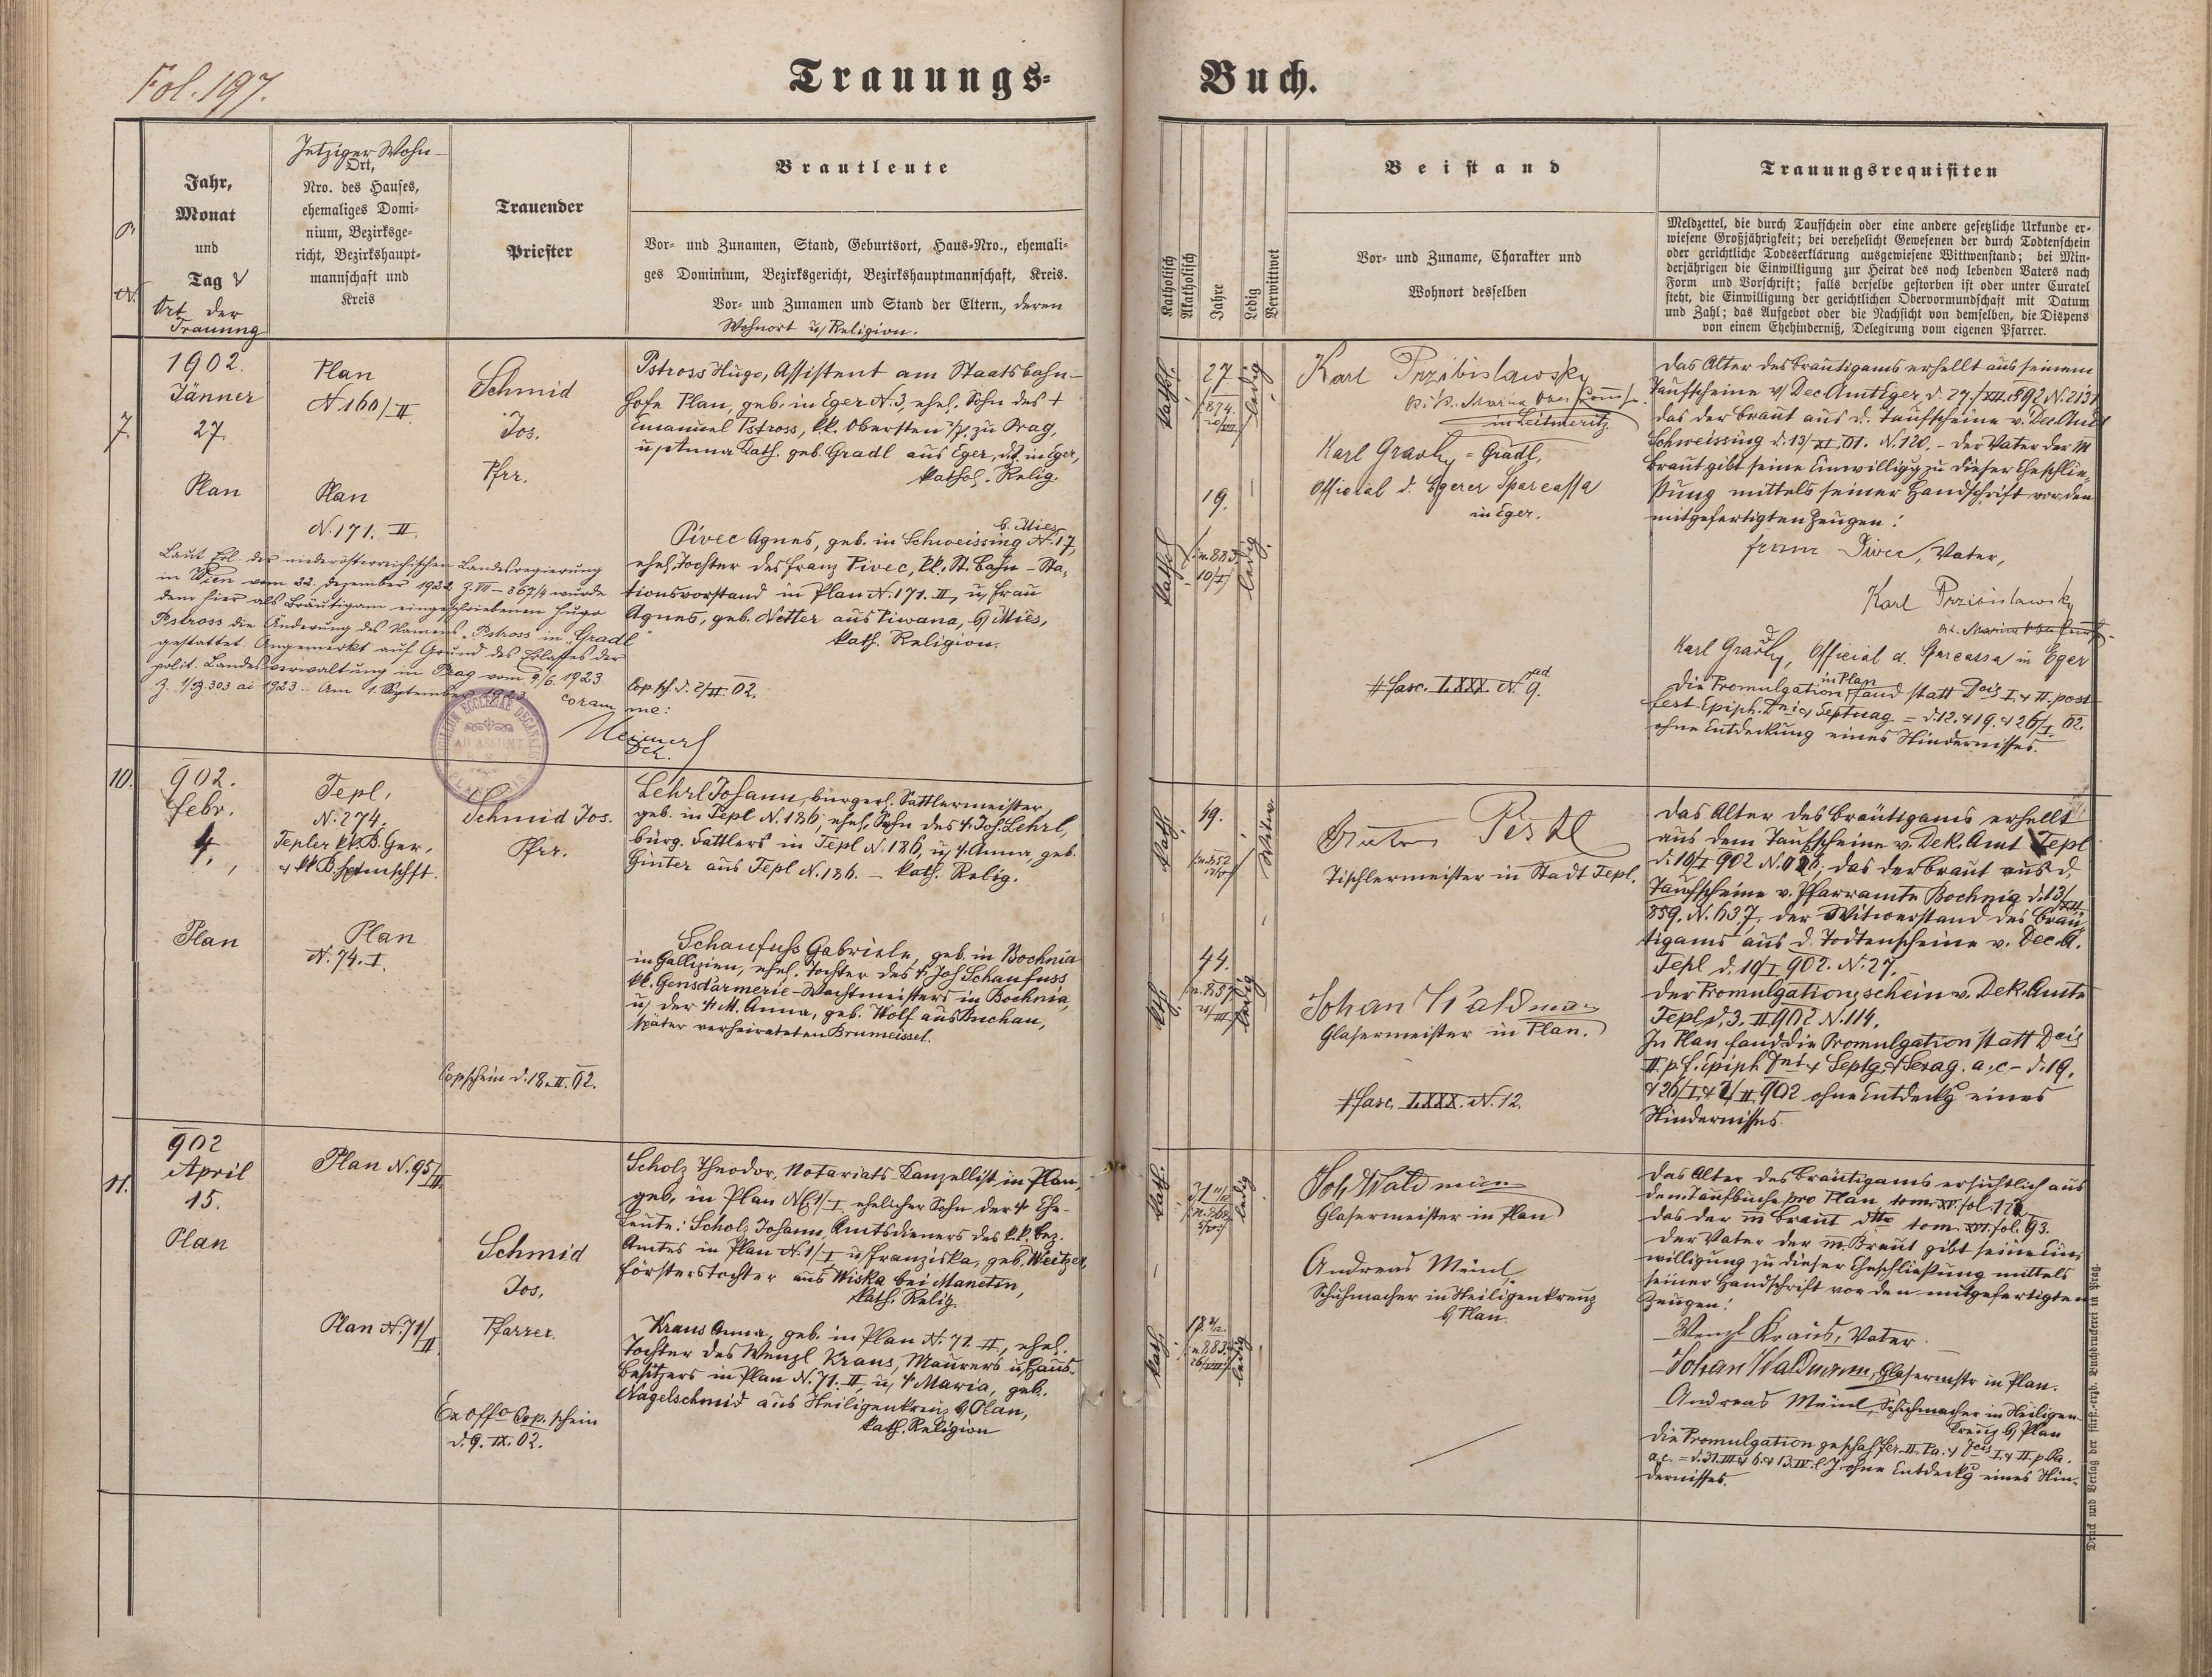 Fol. 197.
Trauungs-
Buch.
P.
N.
Jahr,
Monat
und
Tag &
Ort der
Trauung
Jetziger Wohn-
Ort,
Nro. des Hauses,
ehemaliges Domi-
nium, Bezirksge-
richt, Bezirkshaupt-
mannschaft und
Kreis
Trauender
Priester
Brautleute
Vor- und Zunamen, Stand, Geburtsort, Haus-Nro., ehemali-
ges Dominium, Bezirksgericht, Bezirkshauptmannschaft, Kreis.
Vor- und Zunamen und Stand der Eltern., deren
Wohnort u, Religion.
Katholisch
Akatholisch
Jahre
Ledig
Verwittwet
Beistand
Vor- und Zuname, Charakter und
Wohnort desselben
Trauungsrequisiten
Meldzettel, die durch Taufschein oder eine andere gesetzliche Urkunde er-
wiesene Großjährigkeit; bei verehelicht Gewesenen der durch Todtenschein
oder gerichtliche Todeserklärung ausgewiesene Wittwenstand; bei Min-
derjährigen die Einwilligung zur Heirat des noch lebenden Vaters nach
Form und Vorschrift; falls derselbe gestorben ist oder unter Curatel
steht, die Einwilligung der gerichtlichen Obervormundschaft mit Datum
und Zahl; das Aufgebot oder die Nachsicht von demselben, die Dispens
von einem Ehehinderniß, Delegirung vom eigenen Pfarrer.
1902.
Jänner
27.
Plan
Plan
N. 160/II
Plan
N. 171. II.
Schmid
Jos.
Pfrr.
Pstross Hugo, Assistent am Staatsbahn-
hofe Plan, geb. in Eger N. 3, ehel. Sohn des +
Emanuel Pstross, kk. Obersten zu Prag,
u, Anna Kath. geb. Gradl aus Eger, in Eger,
kathol. Relig.
b. Mies
Pivec Agnes, geb. in Schweissing N. 17,
ehel. Tochter des Franz Pivec, kk. St. Bahn-Sta-
tionsvorstand in Plan N. 171. II, u, Frau
Agnes, geb. Netter aus Piwana, b/Mies,
kath. Religion.
Laut Erl. der niederösterreichischen Landesregierung
in Wien vom 22. Dezember 1922, Z. VII - 367/4 wurde
dem hier als Bräutigam eingeschriebenen Hugo
Pstross die Änderung des Namens „Pstross in „Gradl"
gestattet. Angemerkt auf Grund des Erlasses der
polit. Landesverwaltung in Prag vom 9/6. 1923
Z. 303 ai 1923. Am 1. September 1923
coram me:
Copsch. d. 2/II. 02.
kathol.
27
1874.
ledig
kathol
19.
n. 883.
10/I
ledig.
Karl Przibislawsky
in Leitmeritz
Karl Gradl = Gradl,
Official d. Egerer Sparcassa
in Eger.
# fasc. LXXX. N. ad 9.
Das Alter des Bräutigams erhellt aus seinem
Taufscheine v/ Dec. Amt Eger, d. 27./XII. 892 N. 213,
das der Braut aus d. Taufscheine v. Dec. Amt
Schweissing d. 13/XI. 01. N. 120. - Der Vater der M
Braut gibt seine Einwilligg zu dieser Eheschlie-
ßung mittels seiner Handschrift vor den
mitgefertigten Zeugen:
Franz Pivec, Vater,
Karl Przibislawsky
Karl Gradl, Official d. Sparcassa in Eger
in Plan
Die Promulgation fand statt Dcis I. & II. post
fest. Epiph. Dni & Septuag. = d. 12. & 19. & 26/I 02.
ohne Entdeckung eines Hindernisses.
10.
902.
Febr.
4.
Plan
Tepl,
N. 274.
Tepler kk. B. Ger.
& kk B. Hptmschft.
Plan
N. 74. I.
Schmid Jos.
Pfrr.
Lehrl Johann, bürgerl. Sattlermeister,
geb. in Tepl N. 186, ehel. Sohn des + Joh. Lehrl,
bürg. Sattlers in Tepl N. 186, u, + Anna, geb.
Ginter aus Tepl N. 186. - kath. Relig.
Schaufuss Gabriele, geb. in Bochnia
in Gallizien, ehel. Tochter des + Joh Schaufuss
kk. Gensdarmerie-Wachtmeisters in Bochnia,
u, der + M. Anna, geb. Wolf aus Buchau,
später verheirateten Brumeissel.
Copschein d. 18. II. 02.
kath.
49.
n. 852
Witwer
kth.
44.
n. 857
ledig
Tischlermeister in Stadt Tepl.
Johan Waldman
Glasermeister in Plan.
# fasc. LXXX. N. 12.
Das Alter des Bräutigams erhellt
aus dem Taufscheine v. Dek. Amt Tepl
d. 10/I 902 N. das der Braut aus d.
Taufscheine v. Pfarramte Bochnia d. 13/XII
859. N. 637, der Witwerstand des Bräu-
tigams aus d. Todtenscheine v. Dec. A.
Tepl d. 10/I 902. N. 27.
Der Promulgationsschein v. Dek. Amte
Tepl d. 3. II 902 N. 114.
In Plan fand die Promulgation statt Dcis
II. p. f. Epiph Dni & Septg. & Sexag. a. c - d. 19.
& 26/I & 2/II 902 ohne Entdeckg eines
Hindernisses.
11.
902
April
15.
Plan
Plan N. 95/II.
Plan N. 71/II
Schmid
Jos.
Pfarrer.
Scholz Theodor, Notariats-Kanzellist in Plan,
geb. in Plan N. 1/I, ehelicher Sohn der + Ehe-
leute: Scholz Johann, Amtsdieners des k.k. Bez.
Amtes in Plan N. 1/I u, Franziska, geb. Weitzer,
Försterstochter aus Wiska bei Manetin,
kath. Relig.
Kraus Anna, geb. in Plan N. 71. II., ehel.
Tochter des Wenzl Kraus, Maurers u, Haus-
besitzers in Plan N. 71. II, u, + Maria, geb.
Nagelschmid aus Heiligenkreuz b/ Plan,
kath. Religion
Ex offo Cop. schein
d. 9. IX. 02.
kath.
31
ledig
kath.
n. 883.
ledig
Joh Waldman
Glasermeister in Plan
Andreas Meinl,
Schuhmacher in Heiligenkreuz
b/ Plan.
Das Alter des Bräutigams ersichtlich aus
dem Taufbuche pro Plan tom. XV. fol. 122
das der m Braut dtto tom. XVI. fol. 93.
Der Vater der m. Braut gibt seine Ein-
willigung zu dieser Eheschließung mittels
seiner Handschrift vor den mitgefertigten
Zeugen:
Wenzl Kraus, Vater.
Johan Waldmann, Glasermstr in Plan.
Andreas Meinl, Schuhmacher in Heiligen-
kreuz b/ Plan
Die Promulgation geschah fer. II. Pa. & Dcis I. & II p Pa.
a. c. = d. 31. III & 6. & 13. IV. l. J ohne Entdeckg eines Hin-
dernisses.
Druck und Verlag der fürst.-erzb. Buchdruckerei in Prag.